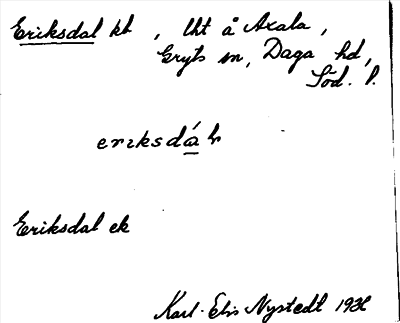 Eriksdal kt, lht å Axala,
Gryts sn, Daga hd,
Söd. l.
erıksdá̱l
Eriksdal ek
Karl-Elis Nystedt 1936